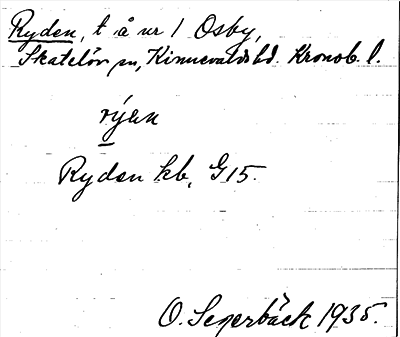 Ryden, t å nr 1 Osby,
Skatelöv sn, Kinnevalds hd. Kronob. l.
rýen
Ryden kb, G15.
O. Segerbäck 1935.